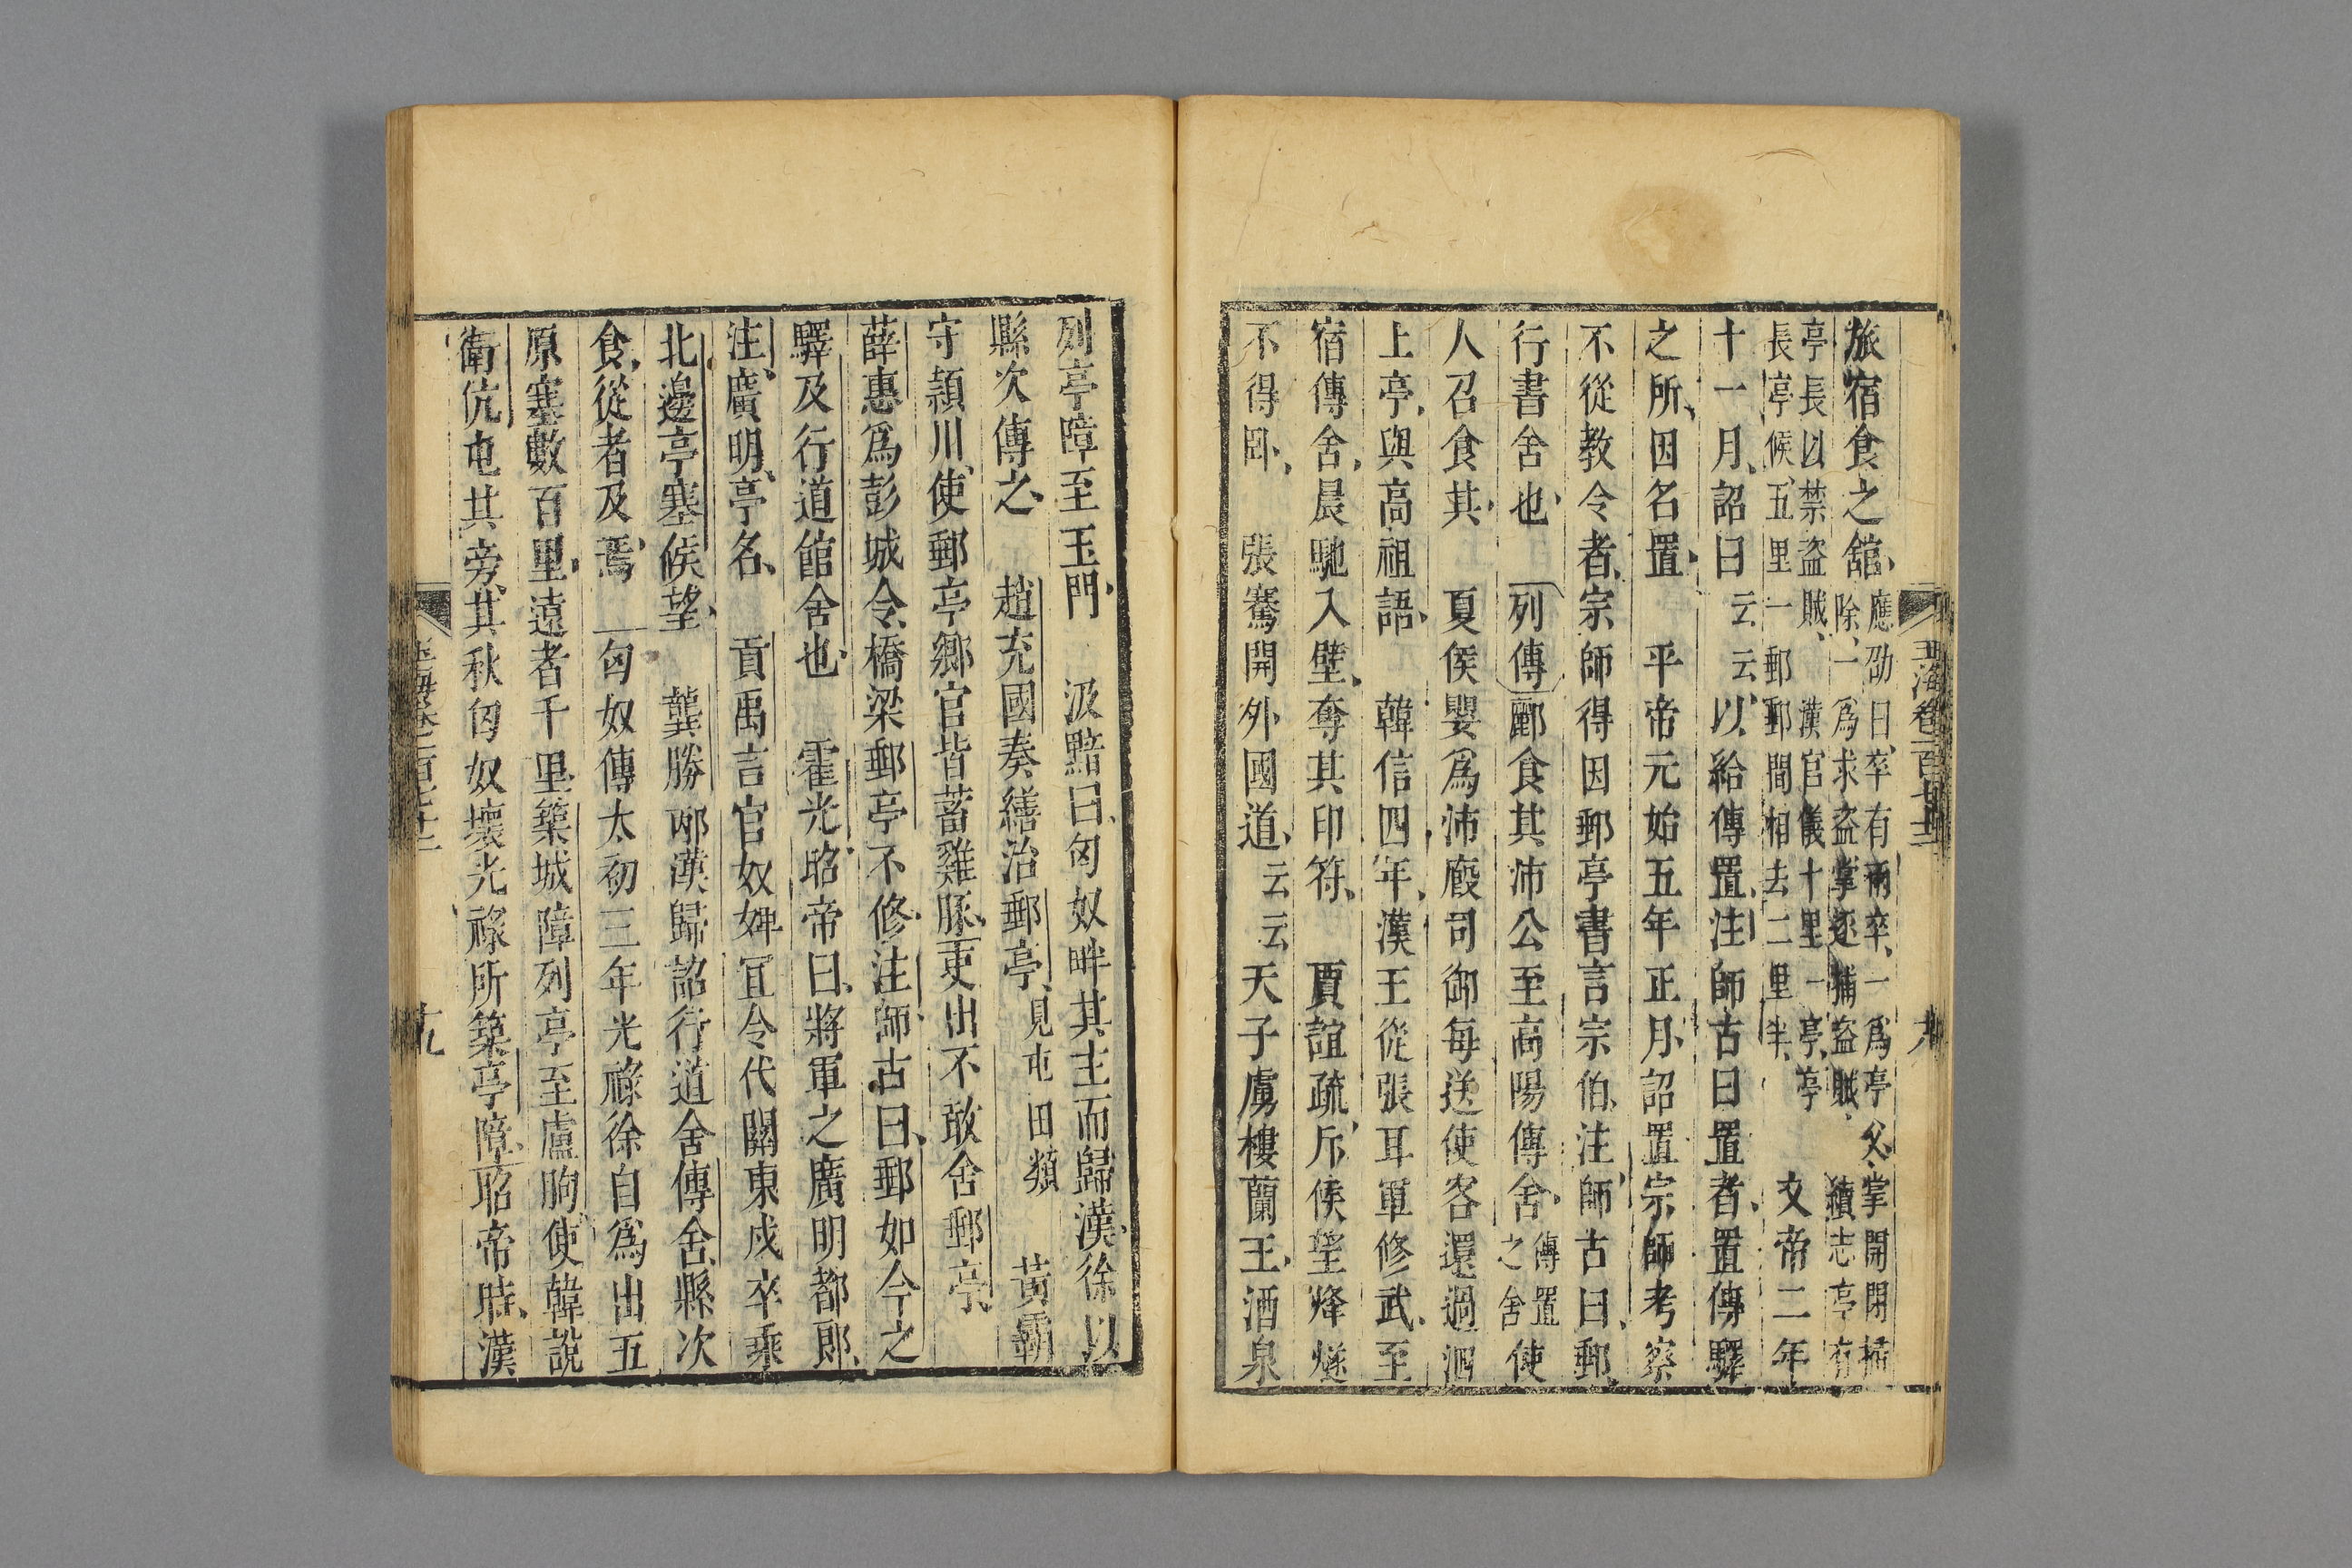 旅宿食之舘應劭曰卒有兩卒一爲亭父掌開閉掃
除一爲求盗掌逐捕盗賊續志亭有
亭長以禁盗賊漢官儀十里一亭亭
長亭候五里一郵郵間相去二里半文帝二年
十一月詔曰云云以給傳置注師古曰置者置傳驛
之所因名置平帝元始五年正月詔置宗師考察
不從教令者宗師得因郵亭書言宗伯注師古曰郵
行書舍也列傳酈食其沛公至高陽傳舍傳置
之舍使
人召食其夏侯嬰爲沛廄司御每送使客還過泗
上亭與高祖語韓信四年漢王從張耳軍修武至
宿傳舍晨馳入壁奪其印符賈誼疏斥候望烽燧
不得臥張騫開外國道云云天子虜樓蘭王酒泉
列亭障至玉門汲黯曰匈奴畔其主而歸漢徐以
縣次傳之趙充國奏繕治郵亭見屯田類黃霸
守頴川使郵亭鄉官皆蓄雞豚吏出不敢舍郵亭
薛惠爲彭城令橋梁郵亭不修注師古曰郵如今之
驛及行道館舍也霍光昭帝曰將軍之廣明都郎
注廣明亭名貢禹言官奴婢冝令代關東戍卒乘
北邊亭塞候望龔勝邴漢歸詔行道舍傳舍縣次
食從者及馬匈奴傳太初三年光祿徐自爲出五
原塞數百里遠者千里築城障列亭至盧朐使韓說
衛伉屯其旁其秋匈奴壞光祿所築亭障昭帝時漢